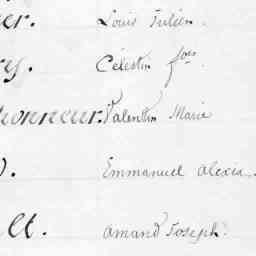 er. Louis Julien.
Célestin fçois.
honneur. Valentin Marie
Emmanuel Alexis.
lt. Amand Joseph.